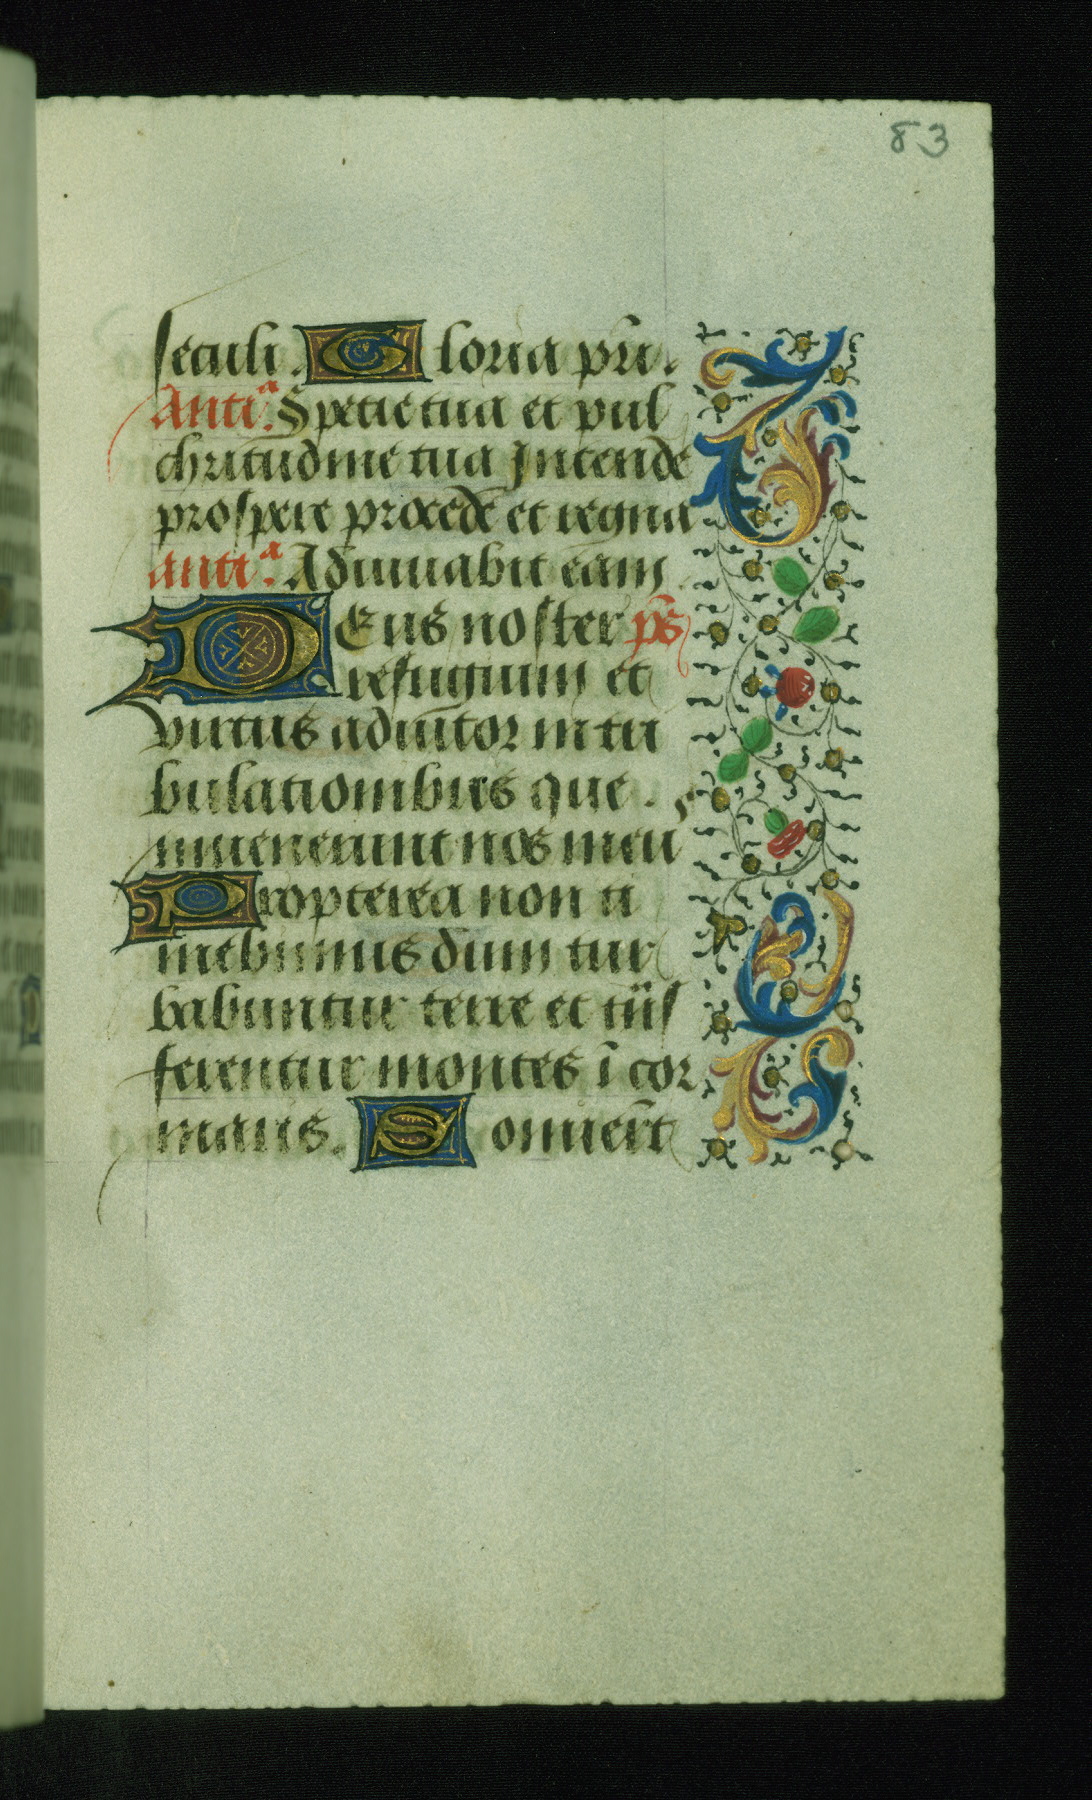 83
seculi. Gloria pri.
Anti.ª Specie tua et pul
chritudine tua Intende
prospere procede et regna
anti.ª Adiuuabit eam
DEus noster ps̄
refugium et
virtus adiutor in tri
bulationibus que .
inuenerunt nos meū
Propterea non ti
mebimus dum tur
babuntur terre et trās
ferentur montes ī cor
maris. Sonuerūt